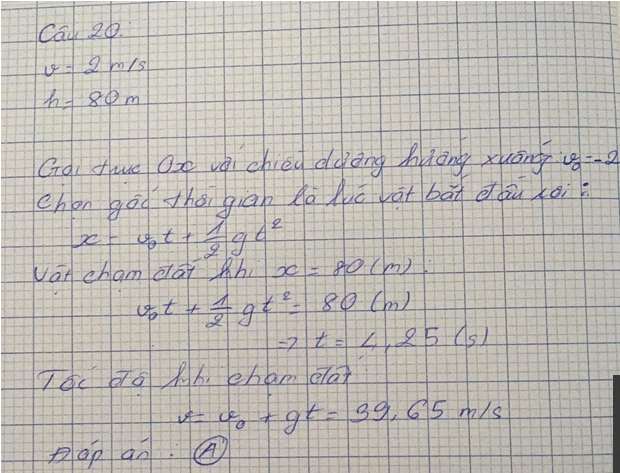 Câu 20:
v = 2 m/s
h = 80 m
Gọi trục Ox với chiều dương hướng xuống v₀=-2
Chọn gốc thời gian là lúc vật bắt đầu rơi :
x = v₀t + 1/2 gt²
Vật chạm đất khi x = 80 (m) :
v₀t + 1/2 gt² = 80 (m)
=> t = 4,25 (s)
Tốc độ khi chạm đất
v = v₀ + gt = 39,65 m/s
Đáp án : A